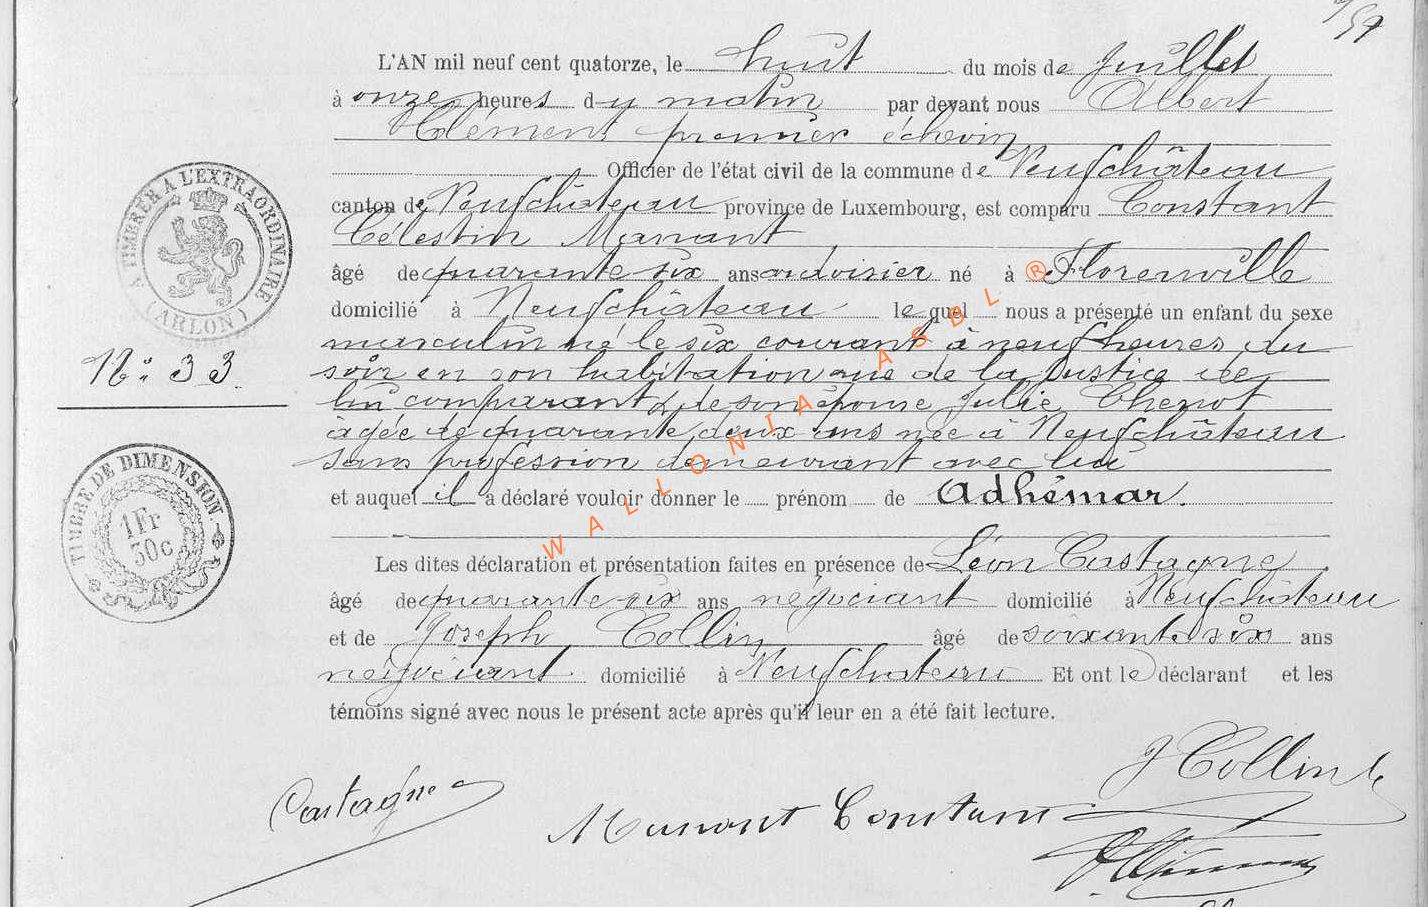 L'AN mil neuf cent quatorze, le huit du mois de Juillet
à onze heures du matin par devant nous Albert
Clément premier échevin
Officier de l'état civil de la commune de Neufchâteau
canton de Neufchâteau province de Luxembourg, est comparu Constant
Célestin Manant
âgé de quarante six ans ardoisier né à Florenville
domicilié à Neufchâteau lequel nous a présenté un enfant du sexe
masculin né le six courant à neuf heures du
soir en son habitation rue de la Justice de
lui comparant & de son épouse Julie Thenot
âgée de quarante deux ans née à Neufchâteau
sans profession demeurant avec lui
et auquel il a déclaré vouloir donner le prénom de Adhémar.
Les dites déclaration et présentation faites en présence de Léon Castagne
âgé de quarante six ans négociant domicilié à Neufchâteau
et de Joseph Collin âgé de soixante six ans
négociant domicilié à Neufchateau Et ont le déclarant et les
témoins signé avec nous le présent acte après qu'il leur en a été fait lecture.
J Collin
Castagne
Manant Constant
A TIMBRER A L'EXTRAORDINAIRE
(ARLON)
No: 33.
TIMBRE DE DIMENSION
1 Fr
30 c
WALLONIA ASBL ®